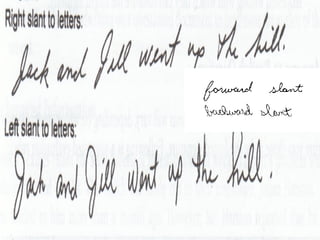 Right slant to letters:
Jack and Jill went up the hill.
forward slant
backward slant
Left slant to letters:
Jack and Jill went up the hill.